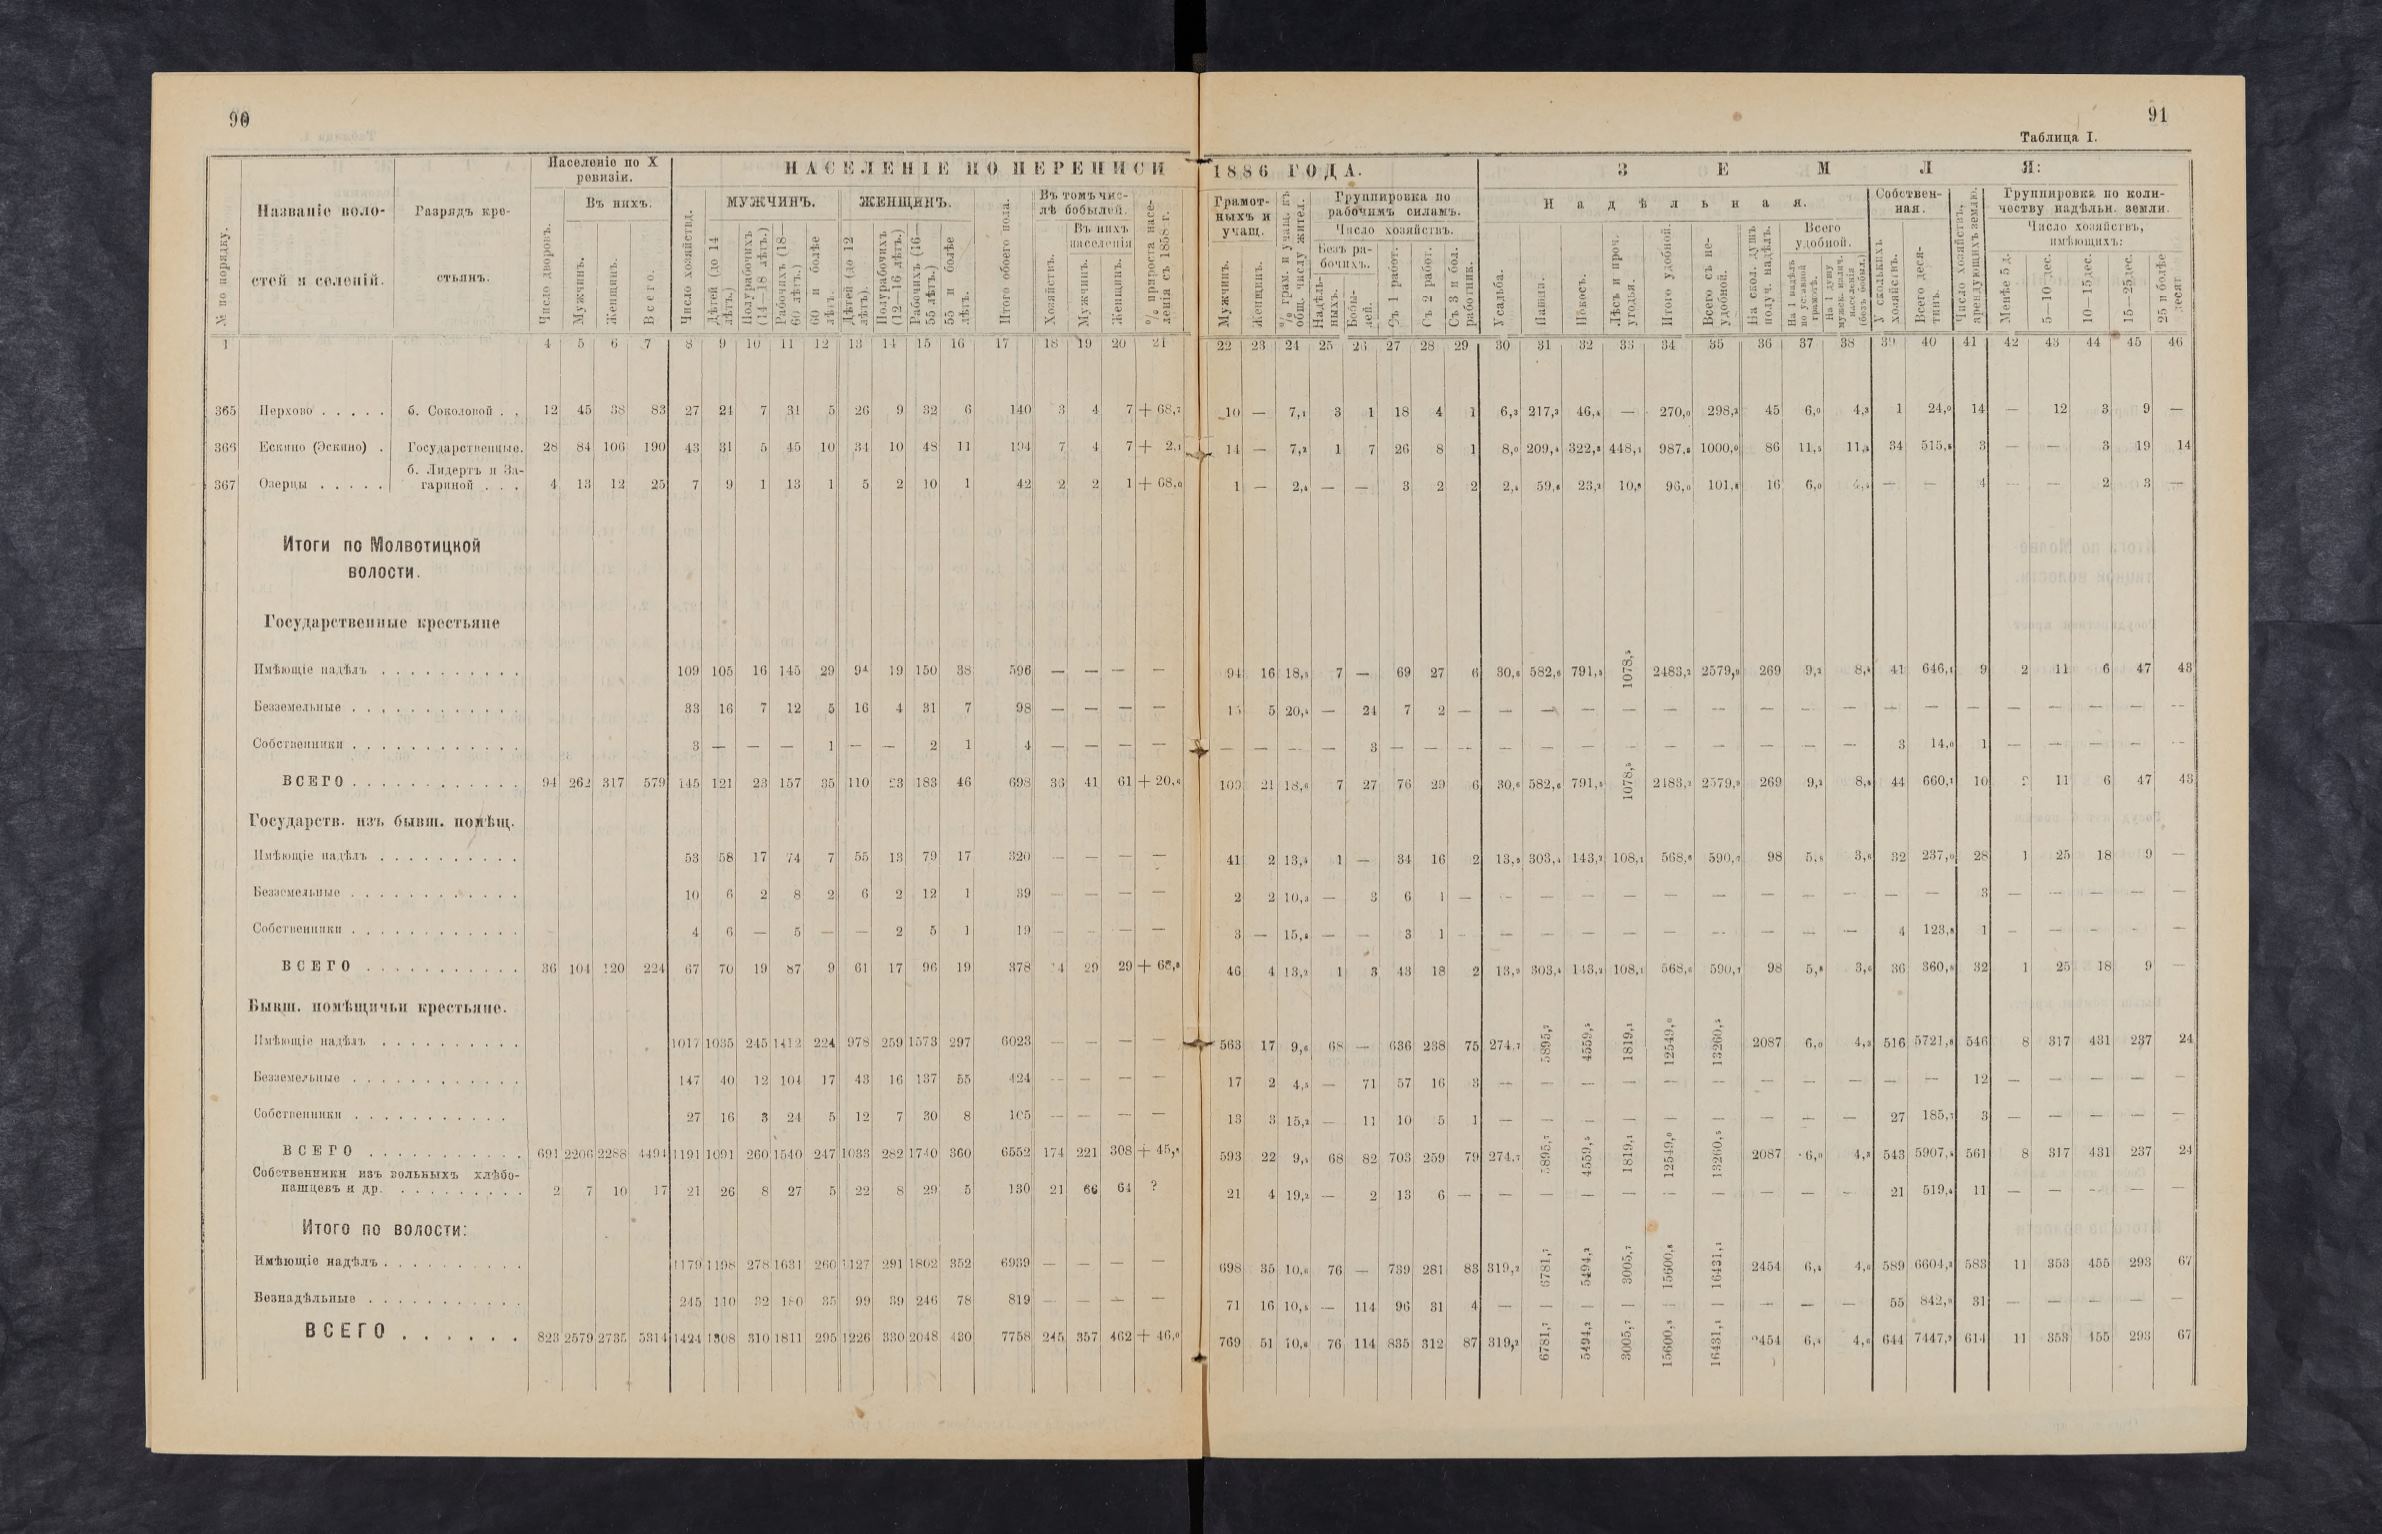 90
91
Таблица I.
№ по порядку.
Названіе воло-
стей и селеній.
Разрядъ кре-
стьянъ.
Населеніе по X
ревизіи.
Число дворовъ.
Въ нихъ.
Мужчинъ.
Женщинъ.
Всего.
НАСЕЛЕНІЕ ПО ПЕРЕПИСИ 1886 ГОДА.
Число хозяйствъ.
МУЖЧИНЪ.
Дѣтей (до 14 лѣтъ.)
Полурабочихъ (14—18 лѣтъ.)
Рабочихъ (18—60 лѣтъ.)
60 и болѣе лѣтъ.
ЖЕНЩИНЪ.
Дѣтей (до 12 лѣтъ).
Полурабочихъ (12—16 лѣтъ.)
Рабочихъ (16—55 лѣтъ.)
55 и болѣе лѣтъ.
Итого обоего пола.
Въ томъ чис-
лѣ бобылей.
Хозяйствъ.
Въ нихъ
населенія
Мужчинъ.
Женщинъ.
% прироста насе-
ленія съ 1858 г.
Грамот-
ныхъ и
учащ.
Мужчинъ.
Женщинъ.
% грам. и учащ. къ общ. числу жител.
Группировка по
рабочимъ силамъ.
Число хозяйствъ.
Безъ ра-
бочихъ.
Надѣль-
ныхъ.
Бобы-
лей.
Съ 1 работ.
Съ 2 работ.
Съ 3 и бол. работник.
ЗЕМЛЯ:
Надѣльная.
Усадьба.
Пашня.
Покосъ.
Лѣсъ и проч. угодья.
Итого удобной.
Всего съ не-
удобной.
На скол. душъ получ. надѣлъ.
Всего
удобной.
На 1 надѣлъ по уставной грамотѣ.
На 1 душу мужск. налич. населенія (безъ бобыл.)
Собствен-
ная.
У сколькихъ хозяйствъ.
Всего деся-
тинъ.
Число хозяйствъ, арендующихъ землю.
Группировка по коли-
честву надѣльн. земли.
Число хозяйствъ,
имѣющихъ:
Менѣе 5 д.
5—10 дес.
10—15 дес.
15—25 дес.
25 и болѣе десят.
1 4 5 6 7 8 9 10 11 12 13 14 15 16 17 18 19 20 21 22 23 24 25 26 27 28 29 30 31 32 33 34 35 36 37 38 39 40 41 42 43 44 45 46
365 Перхово . . . . . б. Соколовой . . 12 45 38 83 27 24 7 31 5 26 9 32 6 140 3 4 7 + 68,7 10 — 7,1 3 1 18 4 1 6,3 217,3 46,4 — 270,0 298,2 45 6,0 4,3 1 24,0 14 — 12 3 9 —
366 Ескино (Эскино) . Государственные. 28 84 106 190 43 31 5 45 10 34 10 48 11 194 7 4 7 + 2,1 14 — 7,2 1 7 26 8 1 8,0 209,4 322,8 448,1 987,8 1000,0 86 11,5 11,3 34 515,8 3 — — 3 19 14
б. Лидертъ и За-
367 Озерцы . . . . . гариной . . . 4 13 12 25 7 9 1 13 1 5 2 10 1 42 2 2 1 + 68,0 1 — 2,4 — — 3 2 2 2,4 59,6 23,2 10,8 96,0 101,8 16 6,0 4 — — 4 — — 2 3 —
Итоги по Молвотицкой
волости.
Государственные крестьяне
Имѣющіе надѣлъ . . . . . . . . . . 109 105 16 145 29 94 19 150 38 596 — — — — 94 16 18,5 7 — 69 27 6 30,6 582,6 791,5 1078,5 2483,2 2579,9 269 9,2 8,4 41 646,1 9 2 11 6 47 43
Безземельные . . . . . . . . . . . . 33 16 7 12 5 16 4 31 7 98 — — — — 15 5 20,4 — 24 7 2 — — — — — — — — — — — — — — — — — —
Собственники . . . . . . . . . . . . 3 — — — 1 — — 2 1 4 — — — — — — — — 3 — — — — — — — — — — — — 3 14,0 1 — — — — —
ВСЕГО . . . . . . . . . . . . 94 262 317 579 145 121 23 157 35 110 23 183 46 698 36 41 61 + 20,6 109 21 18,6 7 27 76 29 6 30,6 582,6 791,5 1078,5 2483,2 2579,9 269 9,2 8,4 44 660,1 10 2 11 6 47 43
Государств. изъ бывш. помѣщ.
Имѣющіе надѣлъ . . . . . . . . . . 53 58 17 74 7 55 13 79 17 320 — — — — 41 2 13,4 1 — 34 16 2 13,9 303,4 143,2 108,1 568,6 590,7 98 5,8 3,6 32 237,0 28 1 25 18 9 —
Безземельные . . . . . . . . . . . . 10 6 2 8 2 6 2 12 1 39 — — — — 2 2 10,3 — 3 6 1 — — — — — — — — — — — — 3 — — — — —
Собственники . . . . . . . . . . . . 4 6 — 5 — — 2 5 1 19 — — — — 3 — 15,8 — — 3 1 — — — — — — — — — — 4 123,8 1 — — — — —
ВСЕГО . . . . . . . . . . . 36 104 120 224 67 70 19 87 9 61 17 96 19 378 14 29 29 + 68,8 46 4 13,2 1 3 43 18 2 13,9 303,4 143,2 108,1 568,6 590,7 98 5,8 3,6 36 360,8 32 1 25 18 9 —
Бывш. помѣщичьи крестьяне.
Имѣющіе надѣлъ . . . . . . . . . . 1017 1035 245 1412 224 978 259 1573 297 6023 — — — — 563 17 9,6 68 — 636 238 75 274,7 5895,7 4559,5 1819,1 12549,0 13260,5 2087 6,0 4,3 516 5721,8 546 8 317 431 237 24
Безземельные . . . . . . . . . . . . 147 40 12 104 17 43 16 137 55 424 — — — — 17 2 4,5 — 71 57 16 3 — — — — — — — — — — — 12 — — — — —
Собственники . . . . . . . . . . . 27 16 3 24 5 12 7 30 8 105 — — — — 13 3 15,2 — 11 10 5 1 — — — — — — — — — 27 185,7 3 — — — — —
ВСЕГО . . . . . . . . . . . 691 2206 2288 4494 1191 1091 260 1540 247 1033 282 1740 360 6552 174 221 308 + 45,8 593 22 9,5 68 82 703 259 79 274,7 5895,7 4559,5 1819,1 12549,0 13260,5 2087 6,0 4,3 543 5907,5 561 8 317 431 237 24
Собственники изъ вольныхъ хлѣбо-
пашцевъ и др. . . . . . . . . . 2 7 10 17 21 26 8 27 5 22 8 29 5 130 21 66 64 ? 21 4 19,2 — 2 13 6 — — — — — — — — — — 21 519,4 11 — — — — —
Итого по волости:
Имѣющіе надѣлъ . . . . . . . . . . 1179 1198 278 1631 260 1127 291 1802 352 6939 — — — — 698 35 10,6 76 — 739 281 83 319,2 6781,7 5494,2 3005,7 15600,8 16431,1 2454 6,4 4,6 589 6604,3 583 11 353 455 293 67
Безнадѣльные . . . . . . . . . . . 245 110 32 180 35 99 39 246 78 819 — — — — 71 16 10,5 — 114 96 31 4 — — — — — — — — — 55 842,9 31 — — — — —
ВСЕГО . . . . . . 823 2579 2735 5314 1424 1308 310 1811 295 1226 330 2048 430 7758 245 357 462 + 46,0 769 51 10,6 76 114 835 312 87 319,2 6781,7 5494,2 3005,7 15600,8 16431,1 2454 6,4 4,6 644 7447,2 614 11 353 455 293 67